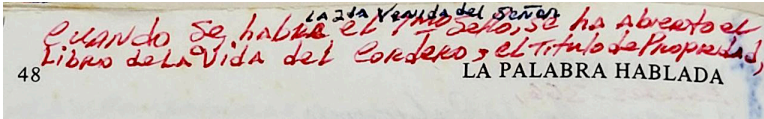 LA 2da Venida del Señor
CUANDO Se habla el 7mo Sello, Se ha abierto el
Libro de La Vida del Cordero, el Titulo de Propiedad,
48
LA PALABRA HABLADA